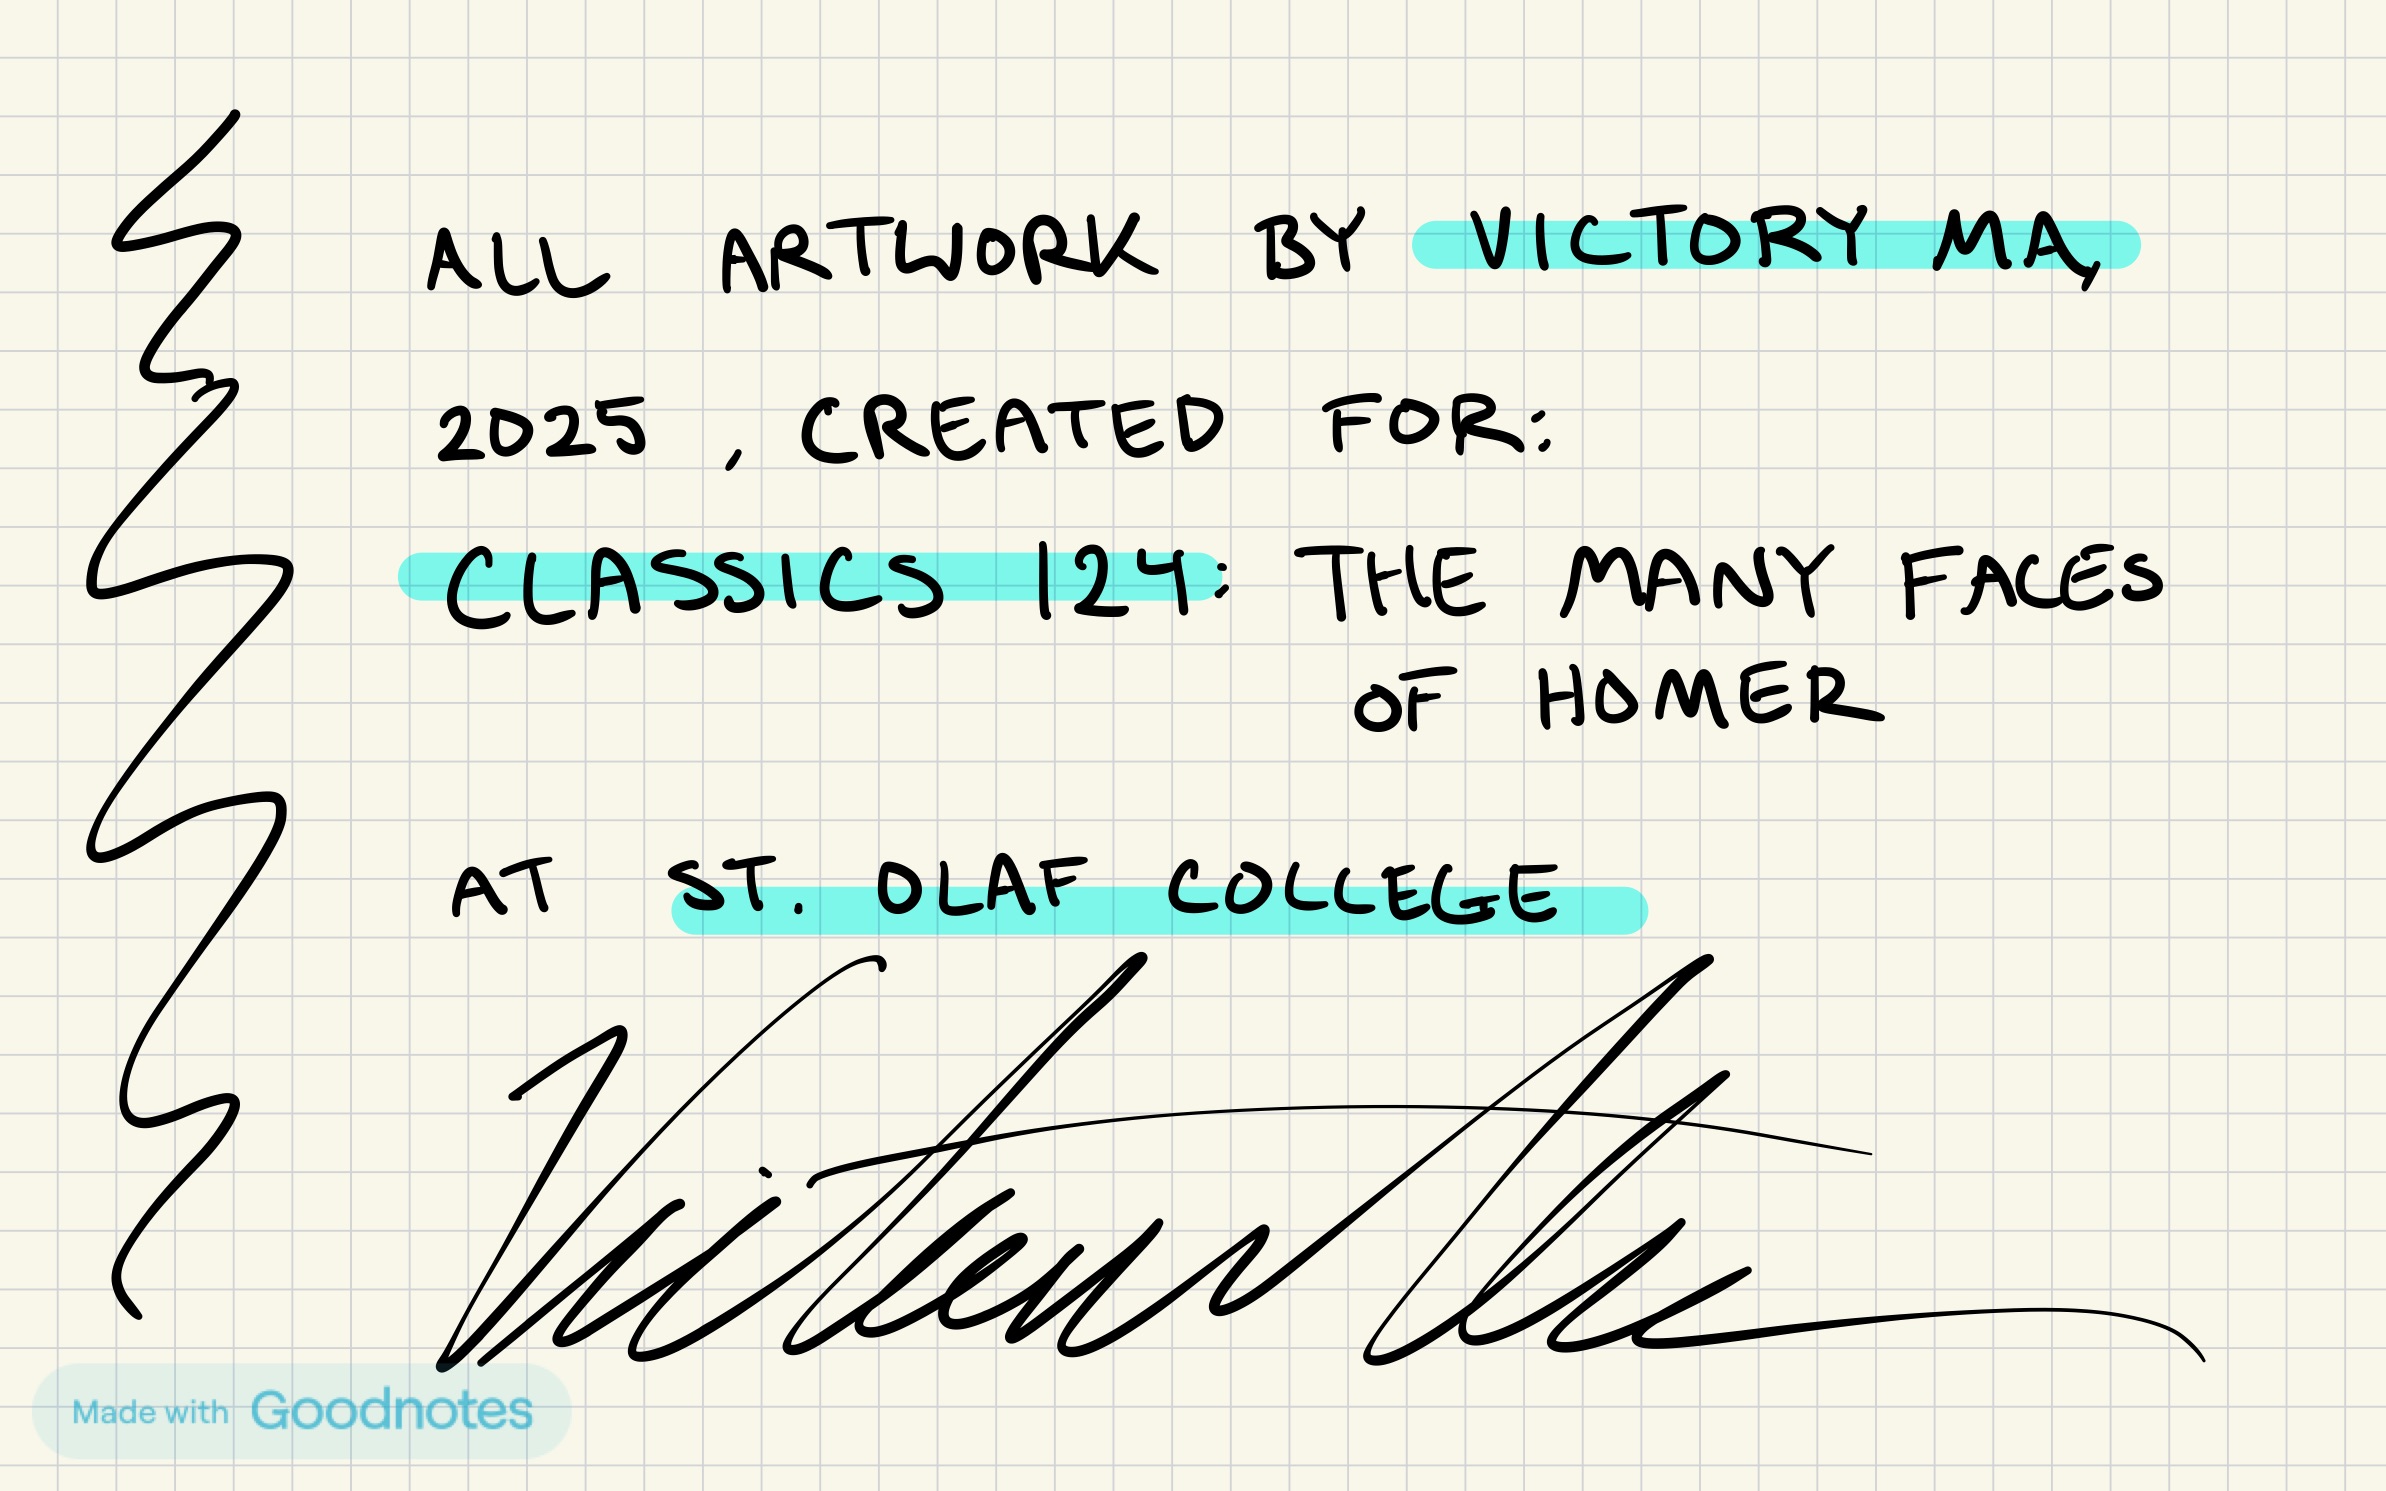 ALL ARTWORK BY VICTORY MA,
2025, CREATED FOR:
CLASSICS 124: THE MANY FACES
OF HOMER
AT ST. OLAF COLLEGE
Made with Goodnotes